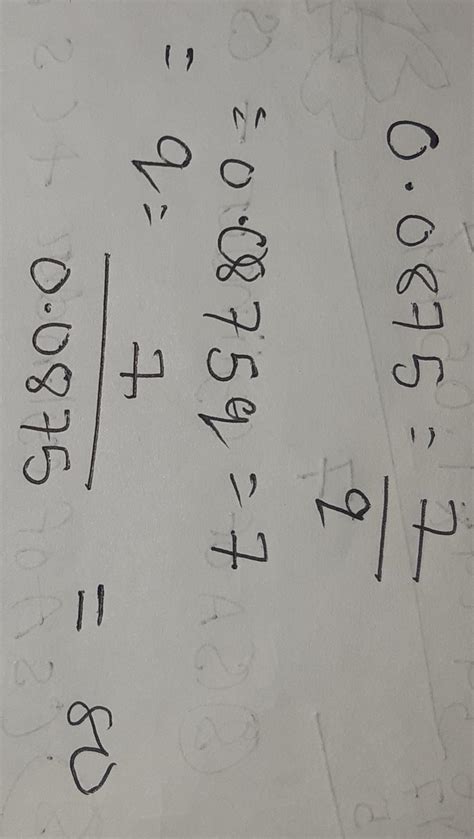 0.0875 = 7/q
= 0.0875q = 7
= q = 7/0.0875 = 80